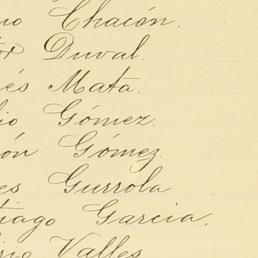 no Chacón.
tor Duval.
és Mata.
io Gómez.
ón Gómez.
es Gurrola
tiago Garcia.
rio Valles